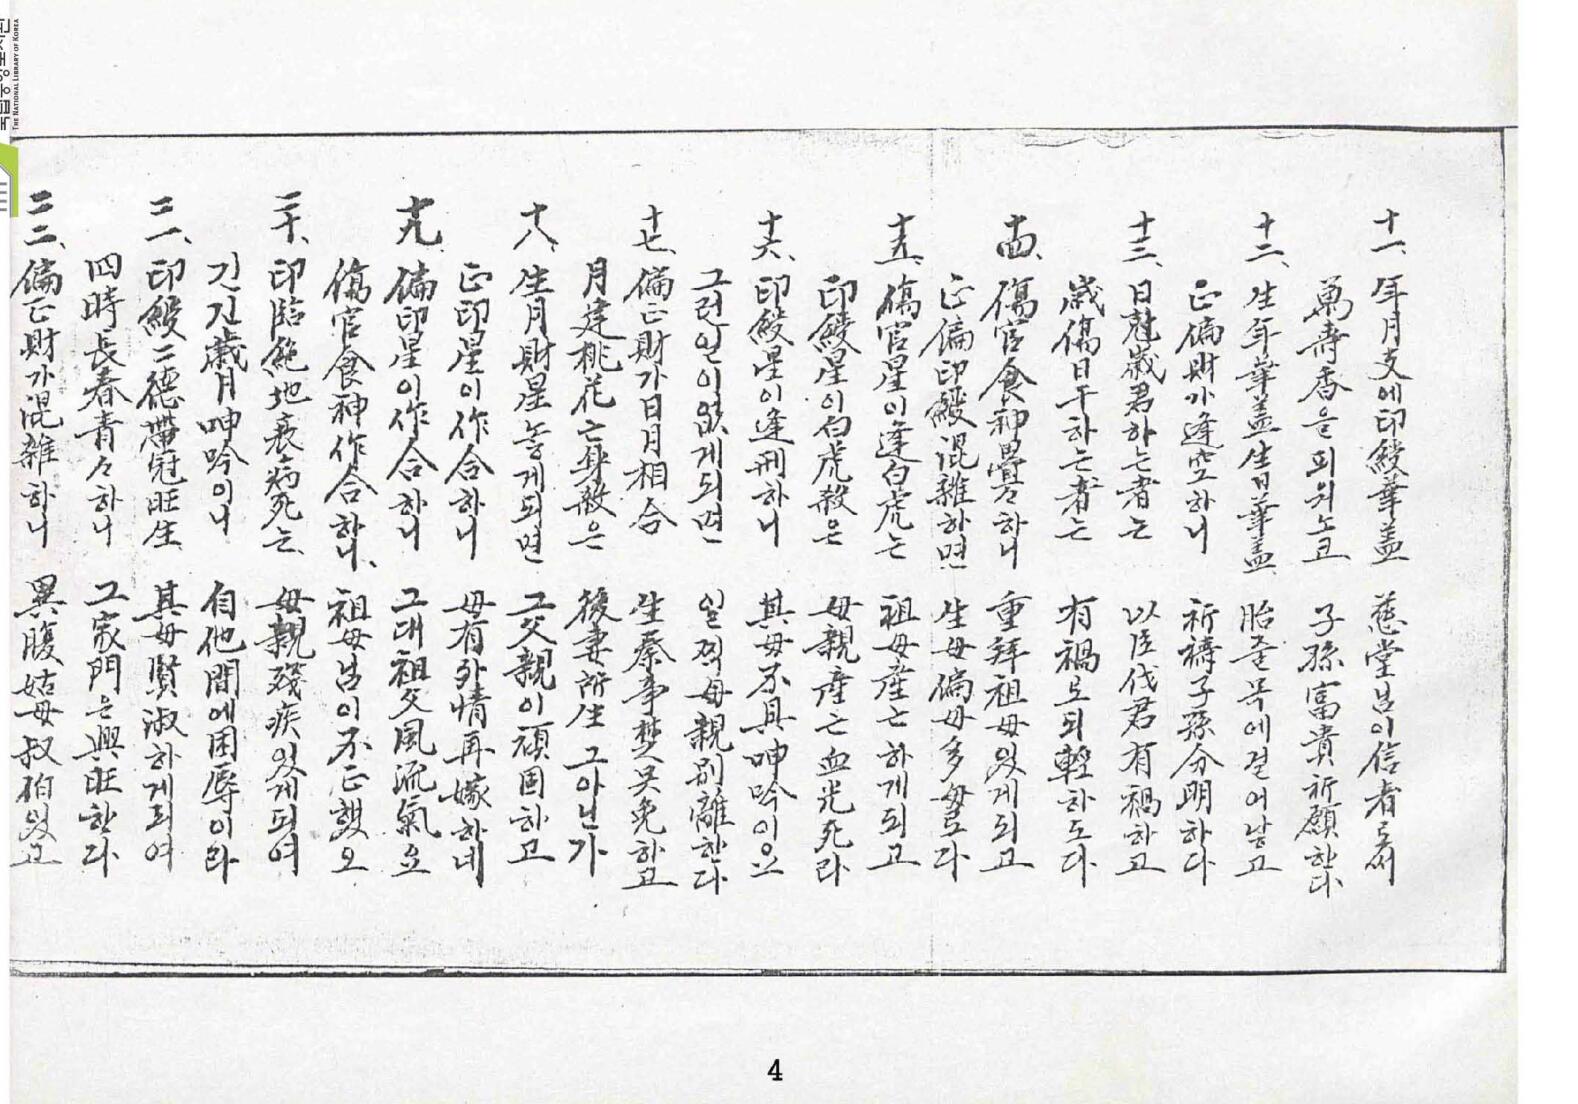 十一、年月支에印綬華盖 慈堂님이信者로써
萬壽香을피워노코 子孫富貴祈願한다
十二、生年華盖生日華盖 胎줄목에걸어낳고
正偏財가逢空하니 祈禱子孫分明하다
十三、日尅歲君하는者는 以臣伐君有禍하고
歲傷日干하는者는 有禍로되輕하도다
十四、傷官食神疊々하니 重拜祖母있게되고
正偏印綬混雜하면 生母偏母多母로다
十五、傷官星이逢白虎는 祖母産亡하게되고
印綬星이白虎殺은 母親産亡血光死라
十六、印綬星이逢刑하니 其母不具呻吟이오
그런일이없게되면 일찍母親別離한다
十七、偏正財가日月相合 生秦事楚못免하고
月建桃花亡身殺은 後妻所生그아닌가
十八、生月財星놓게되면 그父親이頑固하고
正印星이作合하니 母有外情再嫁하네
十九、偏印星이作合하니 그대祖父風流氣요
傷官食神作合하니、 祖母님이不正했오
二十、印臨絶地衰病死는、 母親殘疾있게되여
긴긴歲月呻吟이니 自他間에困辱이라
二一、印綬二德帶冠旺生 其母賢淑하게되여
四時長春青々하니 그家門은興旺한다
二二、偏正財가混雜하니 異腹姑母叔伯있고
4
국립중앙도서관
THE NATIONAL LIBRARY OF KOREA